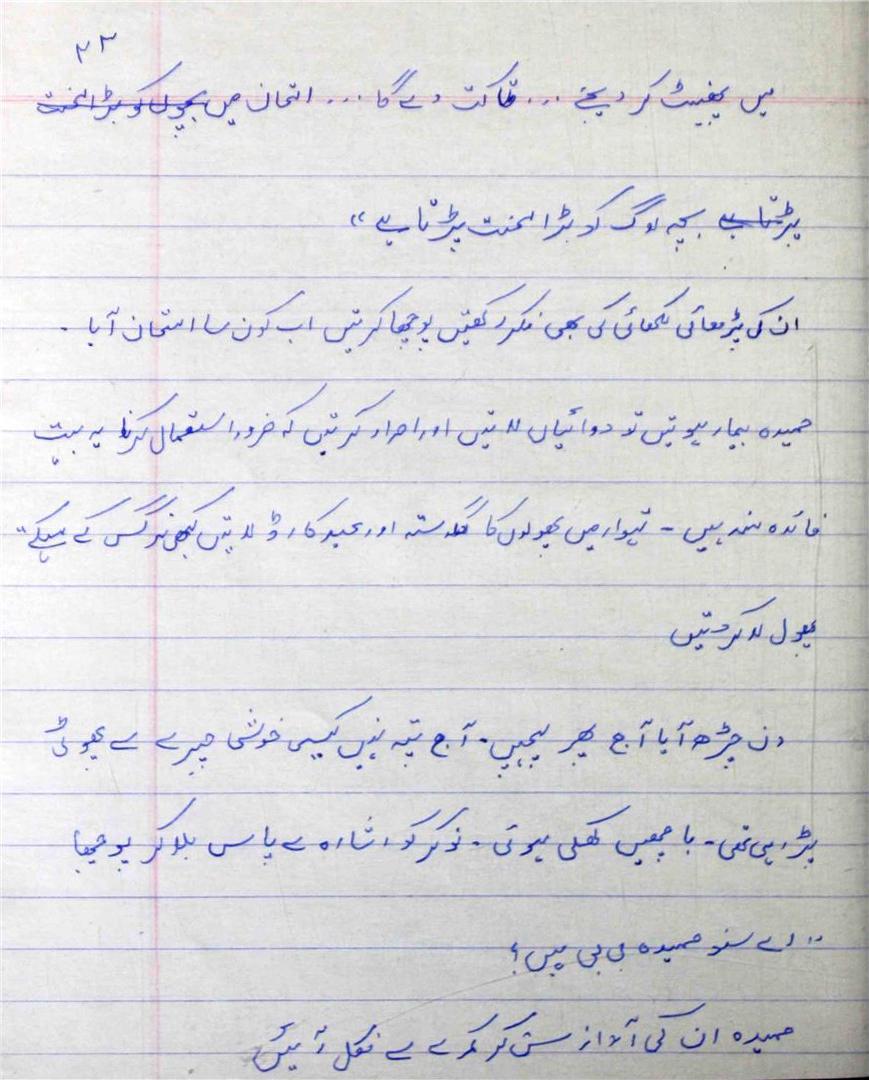 ۳۳
میں پھینٹ کر دیجئے ... طاکت دے گا ... امتحان میں بچوں کو بڑا محنت
پڑتا ہے بچہ لوگ کو بڑا محنت پڑتا ہے"
ان کی پڑھائی لکھائی کی بھی فکر رکھتیں پوچھا کرتیں اب کون سا امتحان آیا۔
حمیدہ بیمار ہوتیں تو دوائیاں لاتیں اور اصرار کرتیں کہ ضرور استعمال کرنا یہ بہت
فائدہ مند ہیں۔ تہوار میں پھولوں کا گلدستہ اور عید کارڈ لاتیں کبھی نرگس کے مہکتے
پھول لاکر دیتیں
دن چڑھ آیا آج پھر پہنچیں۔ آج پتہ نہیں کیسی خوشی چہرے سے پھوٹی
پڑ رہی تھی۔ باچھیں کھلی ہوئی۔ نوکر کو اشارہ سے پاس بلا کر پوچھا
"اے سنو حمیدہ بی بی ہیں؟
حمیدہ ان کی آواز سن کر کمرے سے نکل آئیں